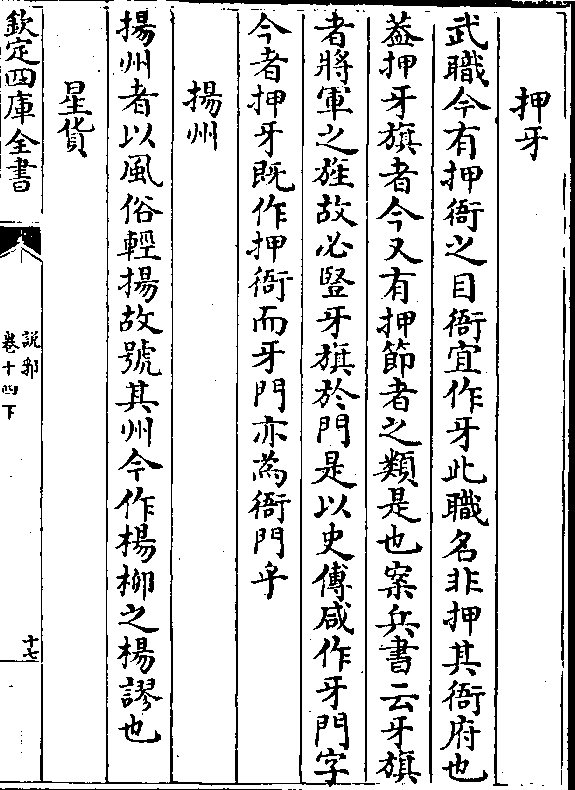 押牙
武職今有押衙之目衙宜作牙此職名非押其衙府也
葢押牙旗者今又有押節者之類是也案兵書云牙旗
者將軍之旌故必豎牙旗於門是以史傳咸作牙門字
今者押牙既作押衙而牙門亦為衙門乎
揚州
揚州者以風俗輕揚故號其州今作楊栁之楊謬也
星貨
欽定四庫全書
說郛
卷十四下
十七